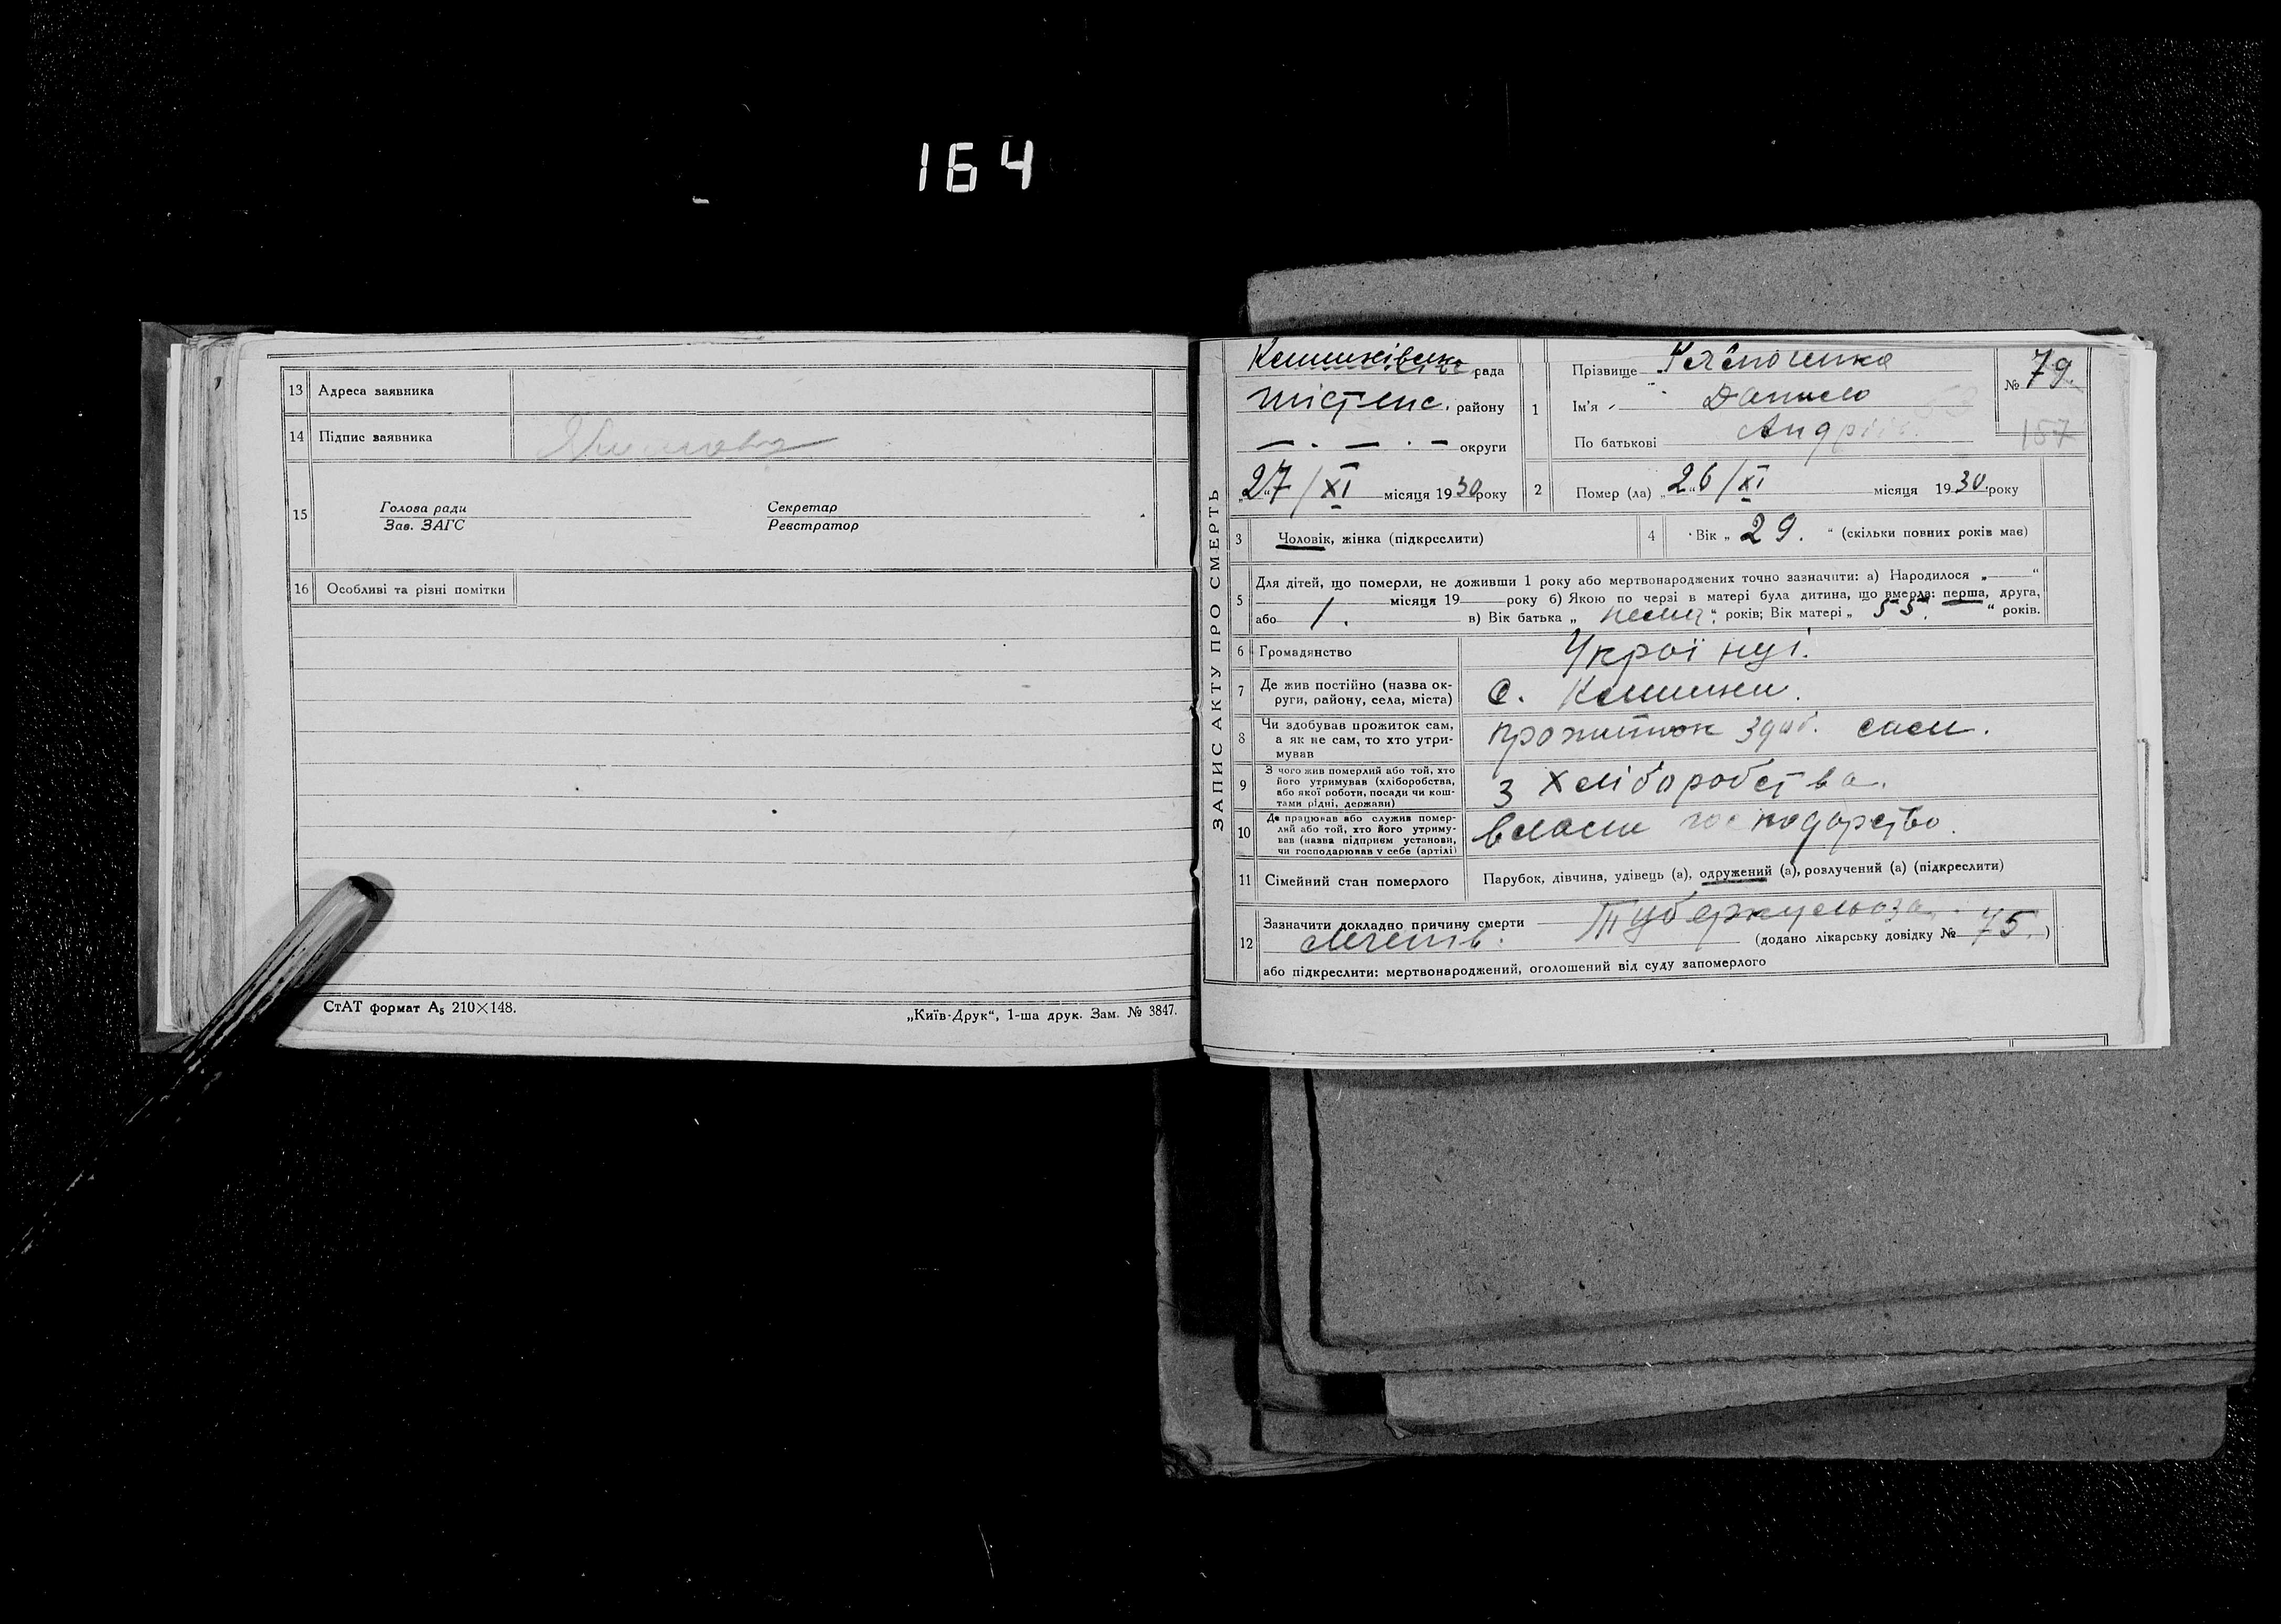 164
13 Адреса заявника
14 Підпис заявника
15
Голова ради
Зав. ЗАГС
Секретар
Реєстратор
16 Особливі та різні помітки
СтАТ формат А₅ 210×148.
„Київ-Друк“, 1-ша друк. Зам. № 3847.
ЗАПИС АКТУ ПРО СМЕРТЬ
рада
району
округи
„27“/XI місяця 1930 року
1
Прізвище
Ім'я Данило
По батькові Андрій
№ 79.
157
2 Помер (ла) „26“/XI місяця 1930 року
3 Чоловік, жінка (підкреслити)
4 Вік „29.“ (скільки повних років має)
5 Для дітей, що померли, не доживши 1 року або мертвонароджених точно зазначити: а) Народилося „—“
місяця 19 року б) Якою по черзі в матері була дитина, що вмерла: перша, друга,
або в) Вік батька „ “ років; Вік матері „55“ років.
6 Громадянство Україїнці.
7 Де жив постійно (назва ок-
руги, району, села, міста) с.
8 Чи здобував прожиток сам,
а як не сам, то хто утри-
мував
прожиток здоб. сам.
9 З чого жив померлий або той, хто
його утримував (хліборобства,
або якої роботи, посади чи кош-
тами рідні, держави)
з хліборобства.
10 Де працював або служив помер-
лий або той, хто його утриму-
вав (назва підприєм установи,
чи господарював у себе (артілі)
власни господарство.
11 Сімейний стан померлого
Парубок, дівчина, удівець (а), одружений (а), розлучений (а) (підкреслити)
12 Зазначити докладно причину смерти Туберкульоза
легенів. (додано лікарську довідку № 75.)
або підкреслити: мертвонароджений, оголошений від суду запомерлого